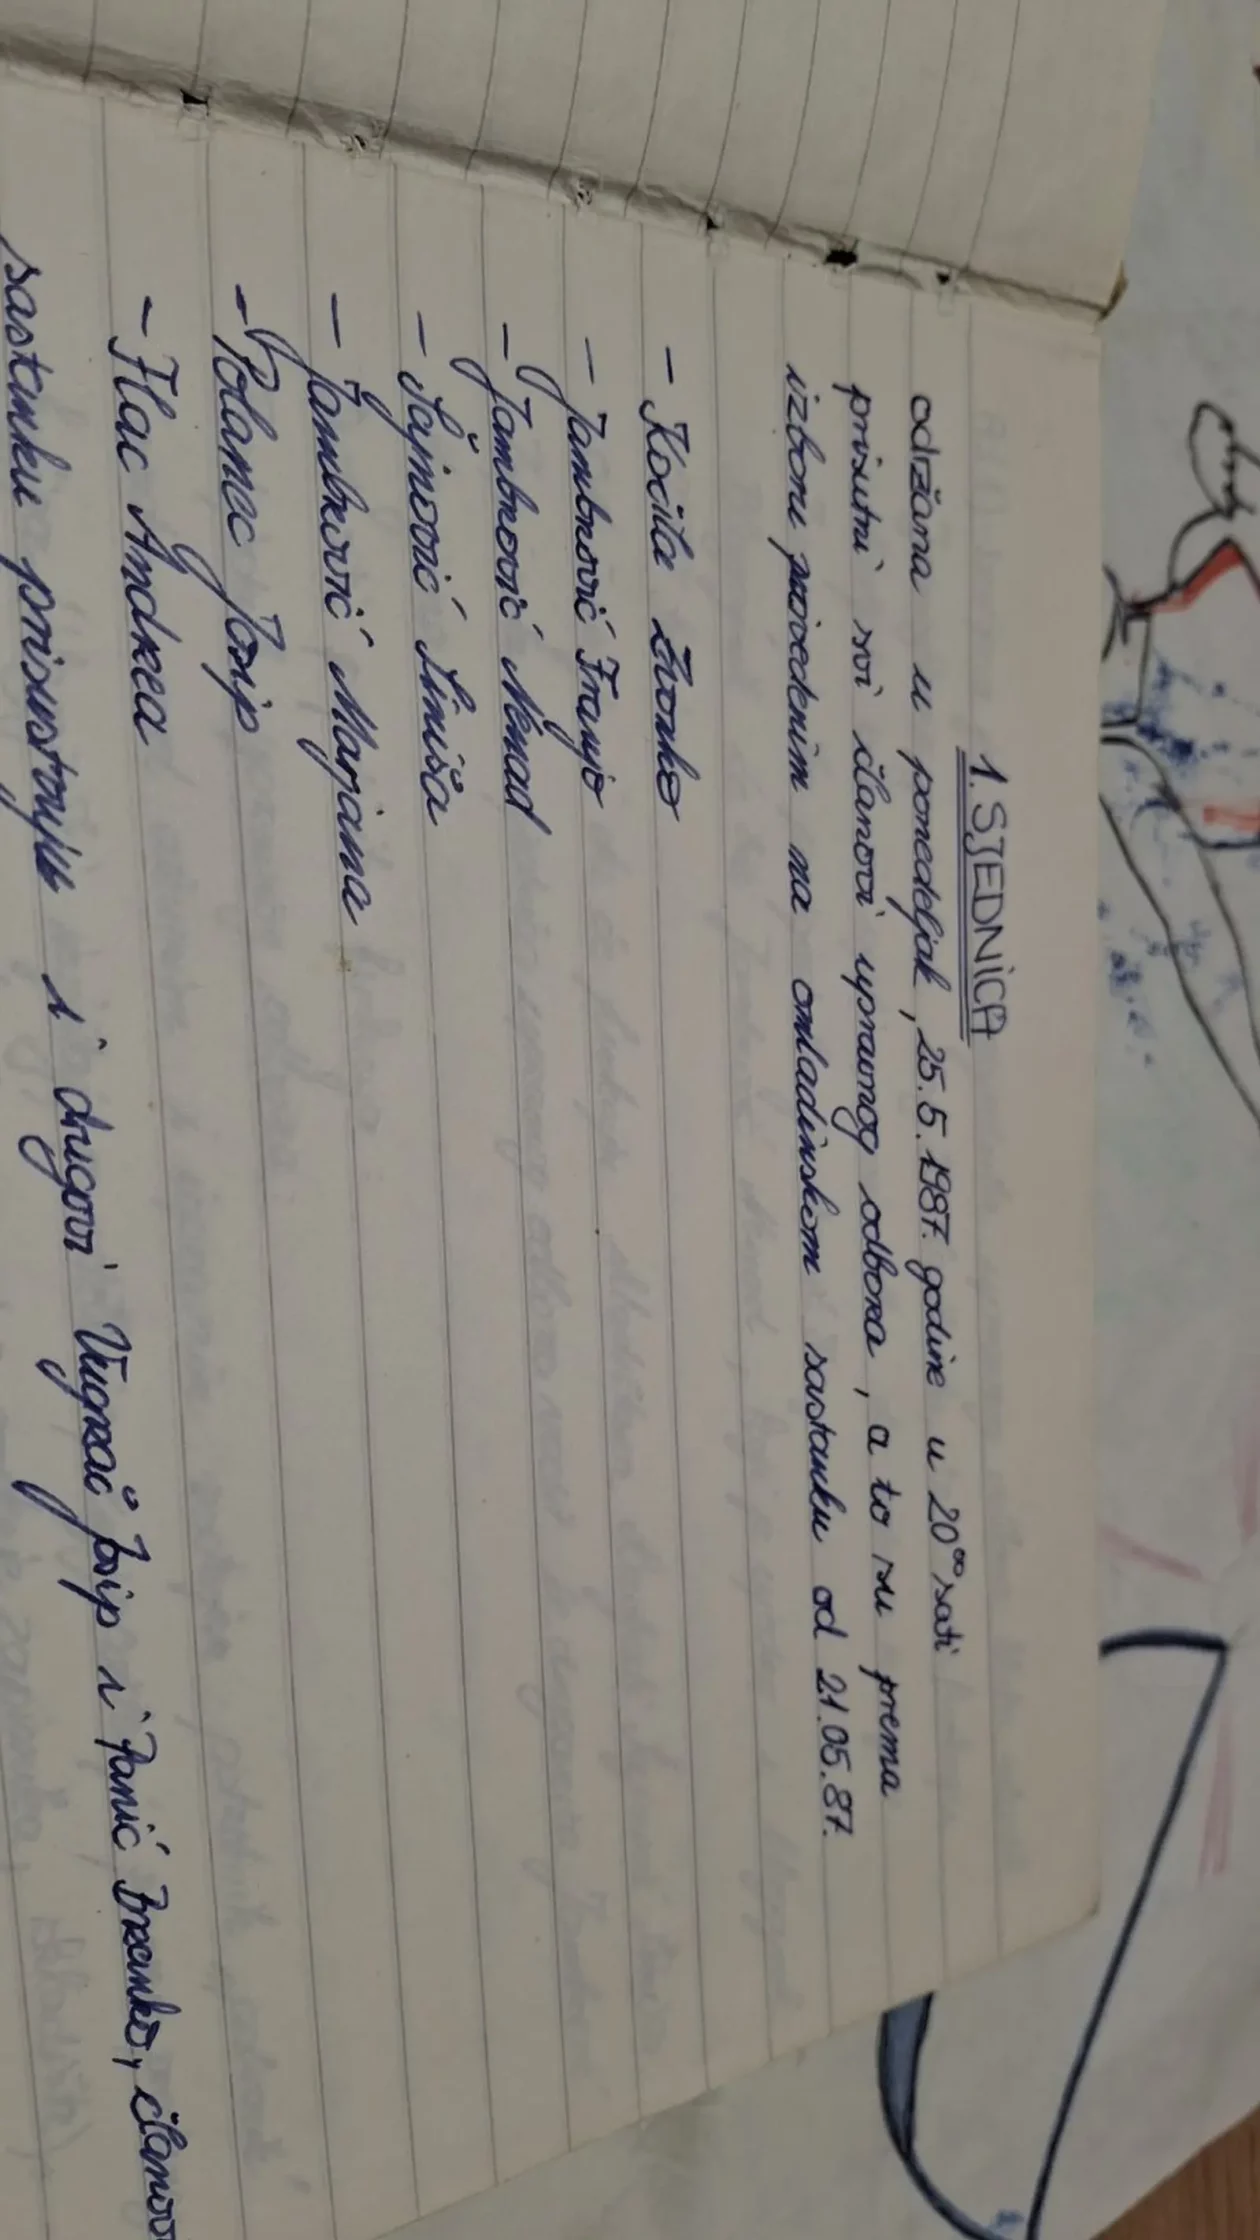 1. SJEDNICA
održana u ponedeljak, 25.5.1987. godine u 20⁰⁰ sati
prisutni svi članovi upravnog odbora, a to su prema
izboru provedenim na omladinskom sastanku od 21.05.87.
- Kočila Zvonko
- Jambrović Franjo
- Jambrović Nenad
- Šajnović Siniša
- Jambrović Marjana
- Polanec Josip
- Flac Andreja
sastanku prisustvuju i drugovi Vugrač Josip i Panić Branko, članovi